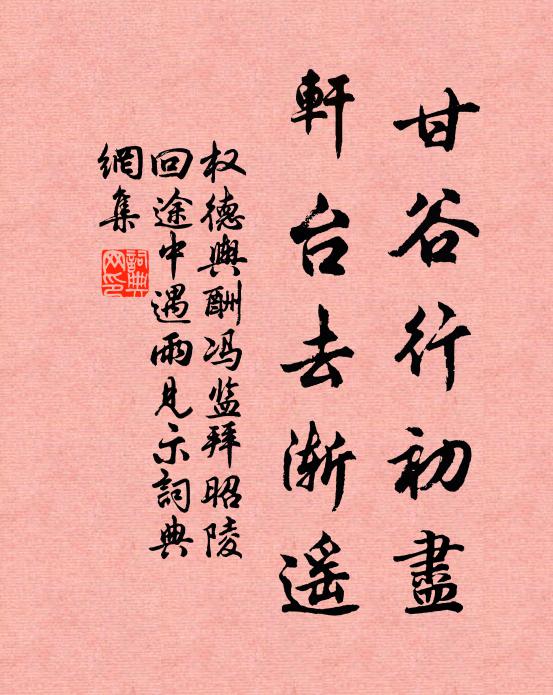 甘谷行初盡
軒台去渐遥
权德輿酬冯监拜昭陵
回途中遇雨見示詞典
網集
詞典网印